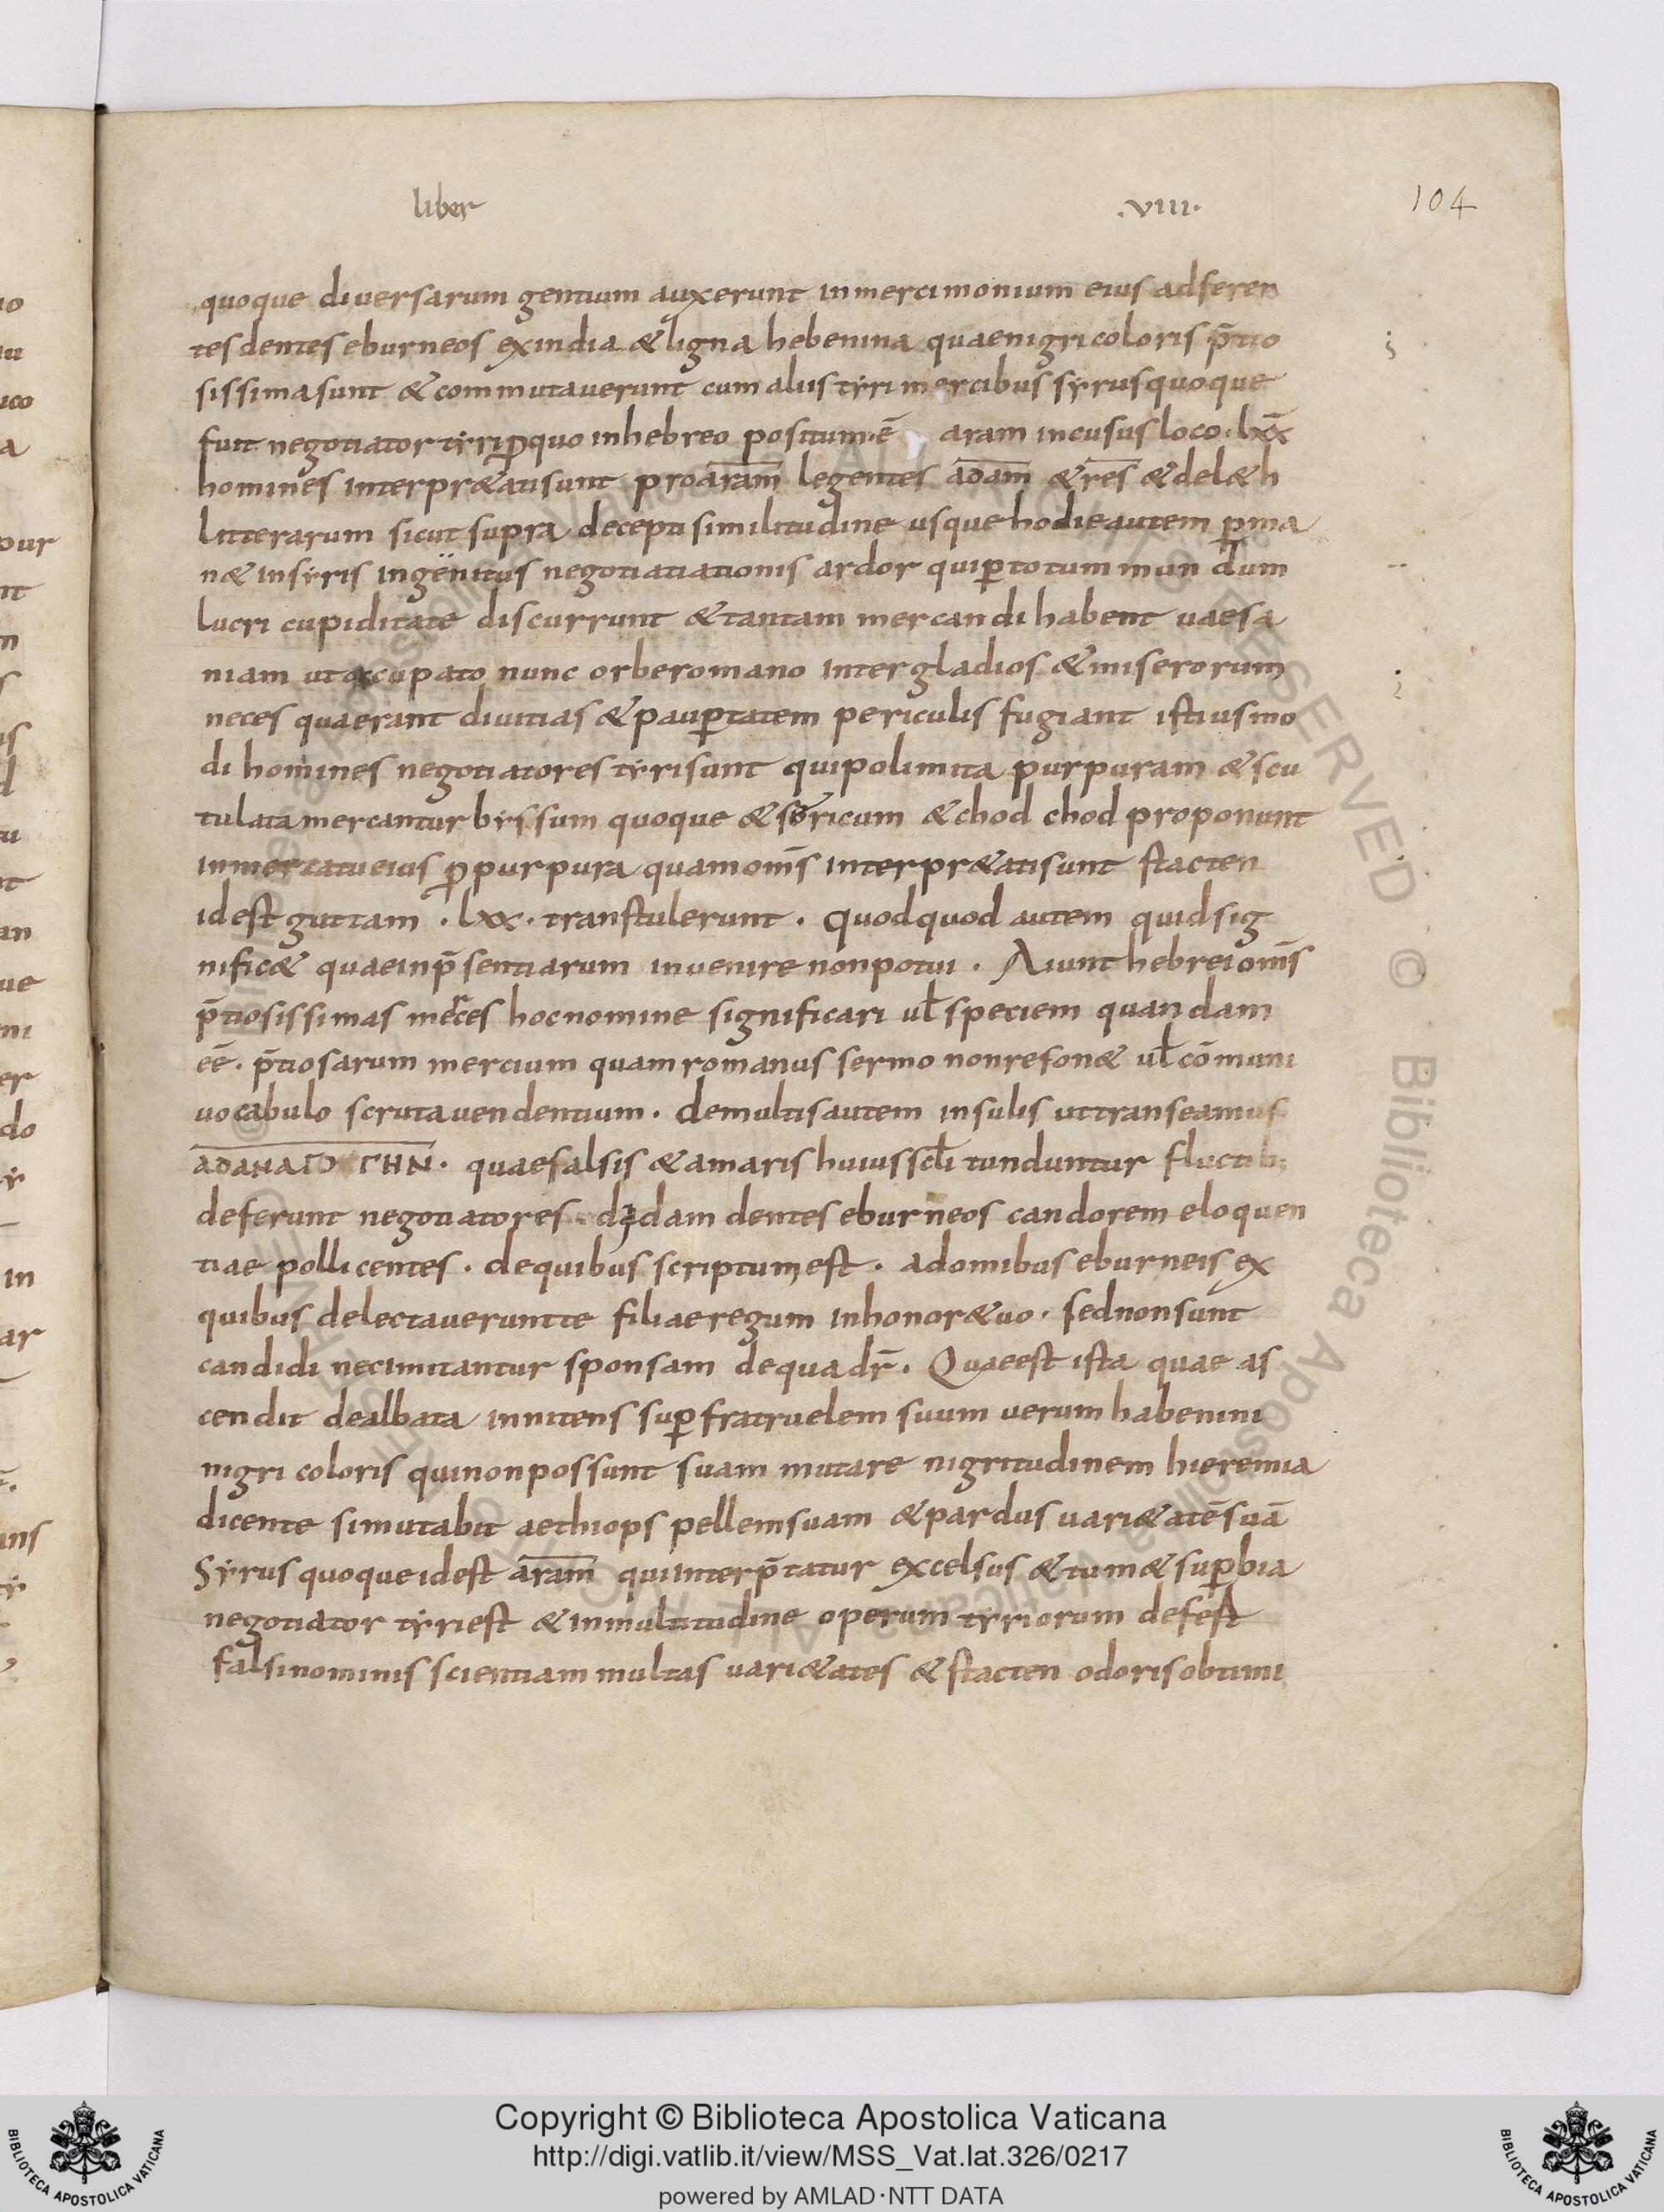 liber .VIII. 104
quoque diuersarum gentium auxerunt inmercimonium eius adferen
tes dentes eburneos exindia & ligna hebenina quaenigri coloris p̄tio
sissima sunt & commutauerunt cum aliis tyri mercibus syrus quoque
fuit negotiator tyri ꝓquo inhebreo positum·ē aram incusus loco·lxx̄
homines interpr&ati sunt pro aram legentes adam & res & del&h
litterarum sicut supra decepti similitudine usque hodie autem ꝑma
n& insyris ingenitus negotiatiationis ardor qui ꝑ totum mundum
lucri cupiditate discurrunt & tantam mercandi habent uaesa
niam ut occupato nunc orbe romano inter gladios & miserorum
neces quaerant diuitias & pauꝑtatem periculis fugiant istiusmo
di homines negotiatores tyri sunt qui polimita purpuram & scu
tulata mercantur byssum quoque & sericum & chod chod proponunt
inmercatu eius ꝓ purpura quam om̄s interpr&ati sunt stacten
idest guttam · lxx · transtulerunt . quodquod autem quid sig
nific& quae inp̄sentiarum inuenire non potui . Aiunt hebrei om̄s
p̄tiosissimas merces hoc nomine significari ul̄ speciem quandam
eē . p̄tiosarum mercium quam romanus sermo non resonæ ul̄ cōmuni
uocabulo scruta uendentium . de multis autem insulis ut transeamus
quae falsis & amaris huius scl̄i tunduntur fluctib;
deferunt negotiatores . dentes eburneos candorem eloquen
tiae pollicentes . de quibus scriptum est . adomibus eburneis ex
quibus delectauerunt te filiae regum inhonor& uo · sed non sunt
candidi nec imitantur sponsam de qua dr̄ . Quae est ista quae as
cendit dealbata innitens suꝑ fratruelem suum uerum habenini
nigri coloris qui non possunt suam mutare nigritudinem hieremia
dicente si mutabit aethiops pellem suam & pardus uari&atē suā
Syrus quoque idest aram qui interp̄tatur excelsus & tum& suꝑbia
negotiator tyri est & inmultitudine operum tyriorum defest
falsi nominis scientiam multas uari&ates & stacten odoris obtimi
Copyright © Biblioteca Apostolica Vaticana
http://digi.vatlib.it/view/MSS_Vat.lat.326/0217
powered by AMLAD·NTT DATA